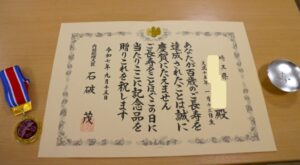 埼玉県
殿
あなたが百歳のご長寿を
達成されたことは誠に
慶賀にたえません
ご長寿をことほぐこの日に
当たりここに記念品を
贈りこれを祝します
令和七年九月十五日
内閣総理大臣 石破 茂